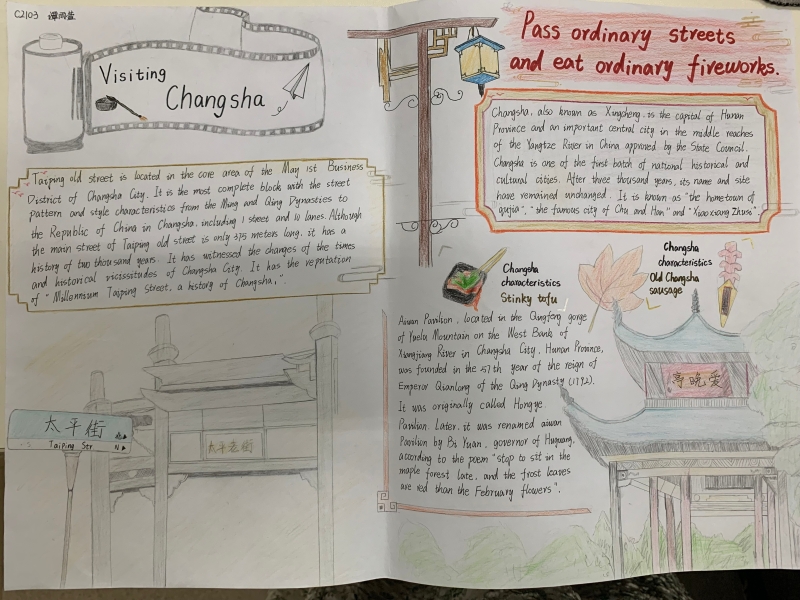 C2103 谭雨萱
Visiting
Changsha
Taiping old street is located in the core area of the May 1st Business
District of Changsha City. It is the most complete block with the street
pattern and style characteristics from the Ming and Qing Dynasties to
the Republic of China in Changsha, including 1 street and 10 lanes. Although
the main street of Taiping old street is only 375 meters long, it has a
history of two thousand years. It has witnessed the changes of the times
and historical vicissitudes of Changsha City. It has the reputation
of "Millennium Taiping Street, a history of Changsha,".
太平街
Taiping Str
N
太平老街
Pass ordinary streets
and eat ordinary fireworks.
Changsha, also known as Xingcheng, is the capital of Hunan
Province and an important central city in the middle reaches
of the Yangtze River in China approved by the State Council.
Changsha is one of the first batch of national historical and
cultural cities. After three thousand years, its name and site
have remained unchanged. It is known as "the hometown of
qujia", "the famous city of Chu and Han" and "Xiaoxiang Zhusi"
Changsha
characteristics
Stinky tofu
Changsha
characteristics
Old Changsha
sausage
Aiwan Pavilion, located in the Qingfeng gorge
of Yuelu Mountain on the West Bank of
Xiangjiang River in Changsha City, Hunan Province,
was founded in the 57th year of the reign of
Emperor Qianlong of the Qing Dynasty (1792).
It was originally called Hongye
Pavilion. Later, it was renamed aiwan
Pavilion by Bi Yuan, governor of Huguang,
according to the poem "stop to sit in the
maple forest late, and the frost leaves
are red than the February flowers".
亭晚爱